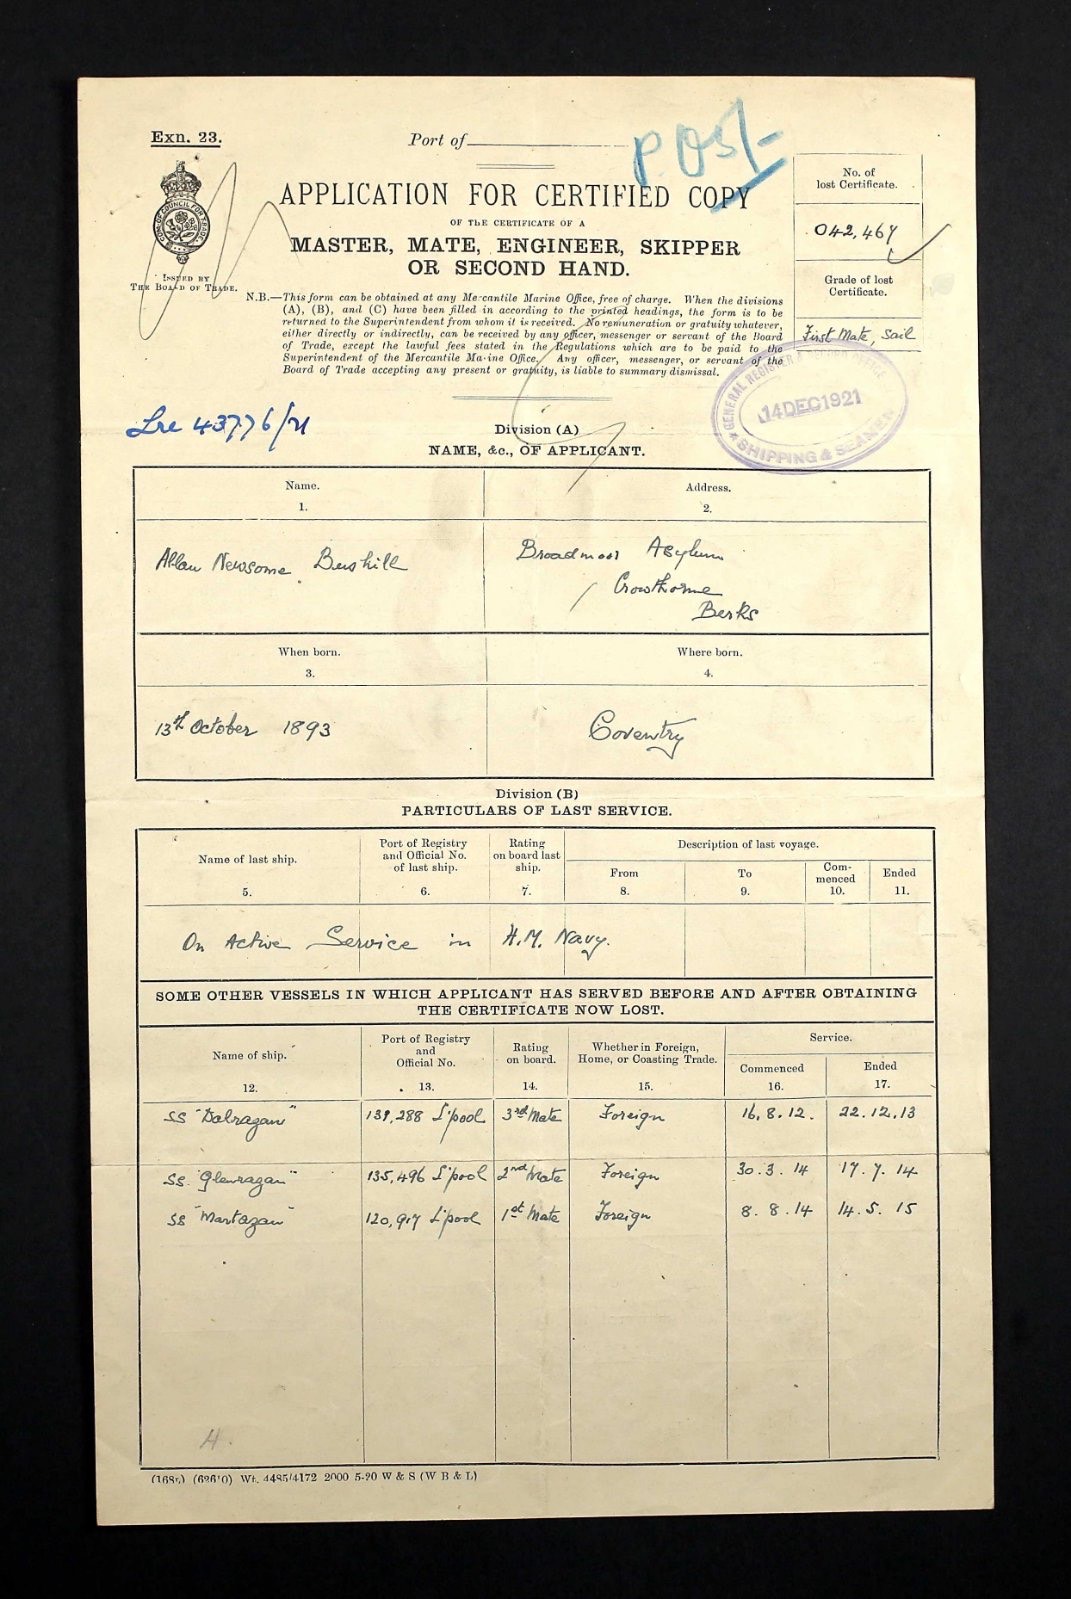 Exn. 23.
Port of
P. OSt
APPLICATION FOR CERTIFIED COPY
OF THE CERTIFICATE OF A
MASTER, MATE, ENGINEER, SKIPPER
OR SECOND HAND.
ISSUED BY
THE BOARD OF TRADE.
N.B.—This form can be obtained at any Mercantile Marine Office, free of charge. When the divisions
(A), (B), and (C) have been filled in according to the printed headings, the form is to be
returned to the Superintendent from whom it is received. No remuneration or gratuity whatever,
either directly or indirectly, can be received by any officer, messenger or servant of the Board
of Trade, except the lawful fees stated in the Regulations which are to be paid to the
Superintendent of the Mercantile Marine Office. Any officer, messenger, or servant of the
Board of Trade accepting any present or gratuity, is liable to summary dismissal.
No. of
lost Certificate.
042,467
Grade of lost
Certificate.
First Mate, Sail
GENERAL REGISTER
14 DEC 1921
SHIPPING & SEAMEN
Lre 43776/21
Division (A)
NAME, &c., OF APPLICANT.
Name.
1.
Address.
2.
Allan Newsome Bushill
Broadmoor Asylum
Crowthorne
Berks
When born.
3.
Where born.
4.
13th October 1893
Coventry
Division (B)
PARTICULARS OF LAST SERVICE.
Name of last ship.
5.
Port of Registry
and Official No.
of last ship.
6.
Rating
on board last
ship.
7.
Description of last voyage.
From
8.
To
9.
Com-
menced
10.
Ended
11.
On Active Service in H.M. Navy.
SOME OTHER VESSELS IN WHICH APPLICANT HAS SERVED BEFORE AND AFTER OBTAINING
THE CERTIFICATE NOW LOST.
Name of ship.
12.
Port of Registry
and
Official No.
13.
Rating
on board.
14.
Whether in Foreign,
Home, or Coasting Trade.
15.
Service.
Commenced
16.
Ended
17.
SS "Dalragan" 131,288 L'pool 3rd Mate Foreign 16.8.12. 22.12.13
SS "Glenragan" 135,496 L'pool 2nd Mate Foreign 30.3.14 17.7.14
SS "Martagan" 120,917 L'pool 1st Mate Foreign 8.8.14 14.5.15
H.
(1685) (62610) Wt. 4485/4172 2000 5-20 W & S (W B & L)